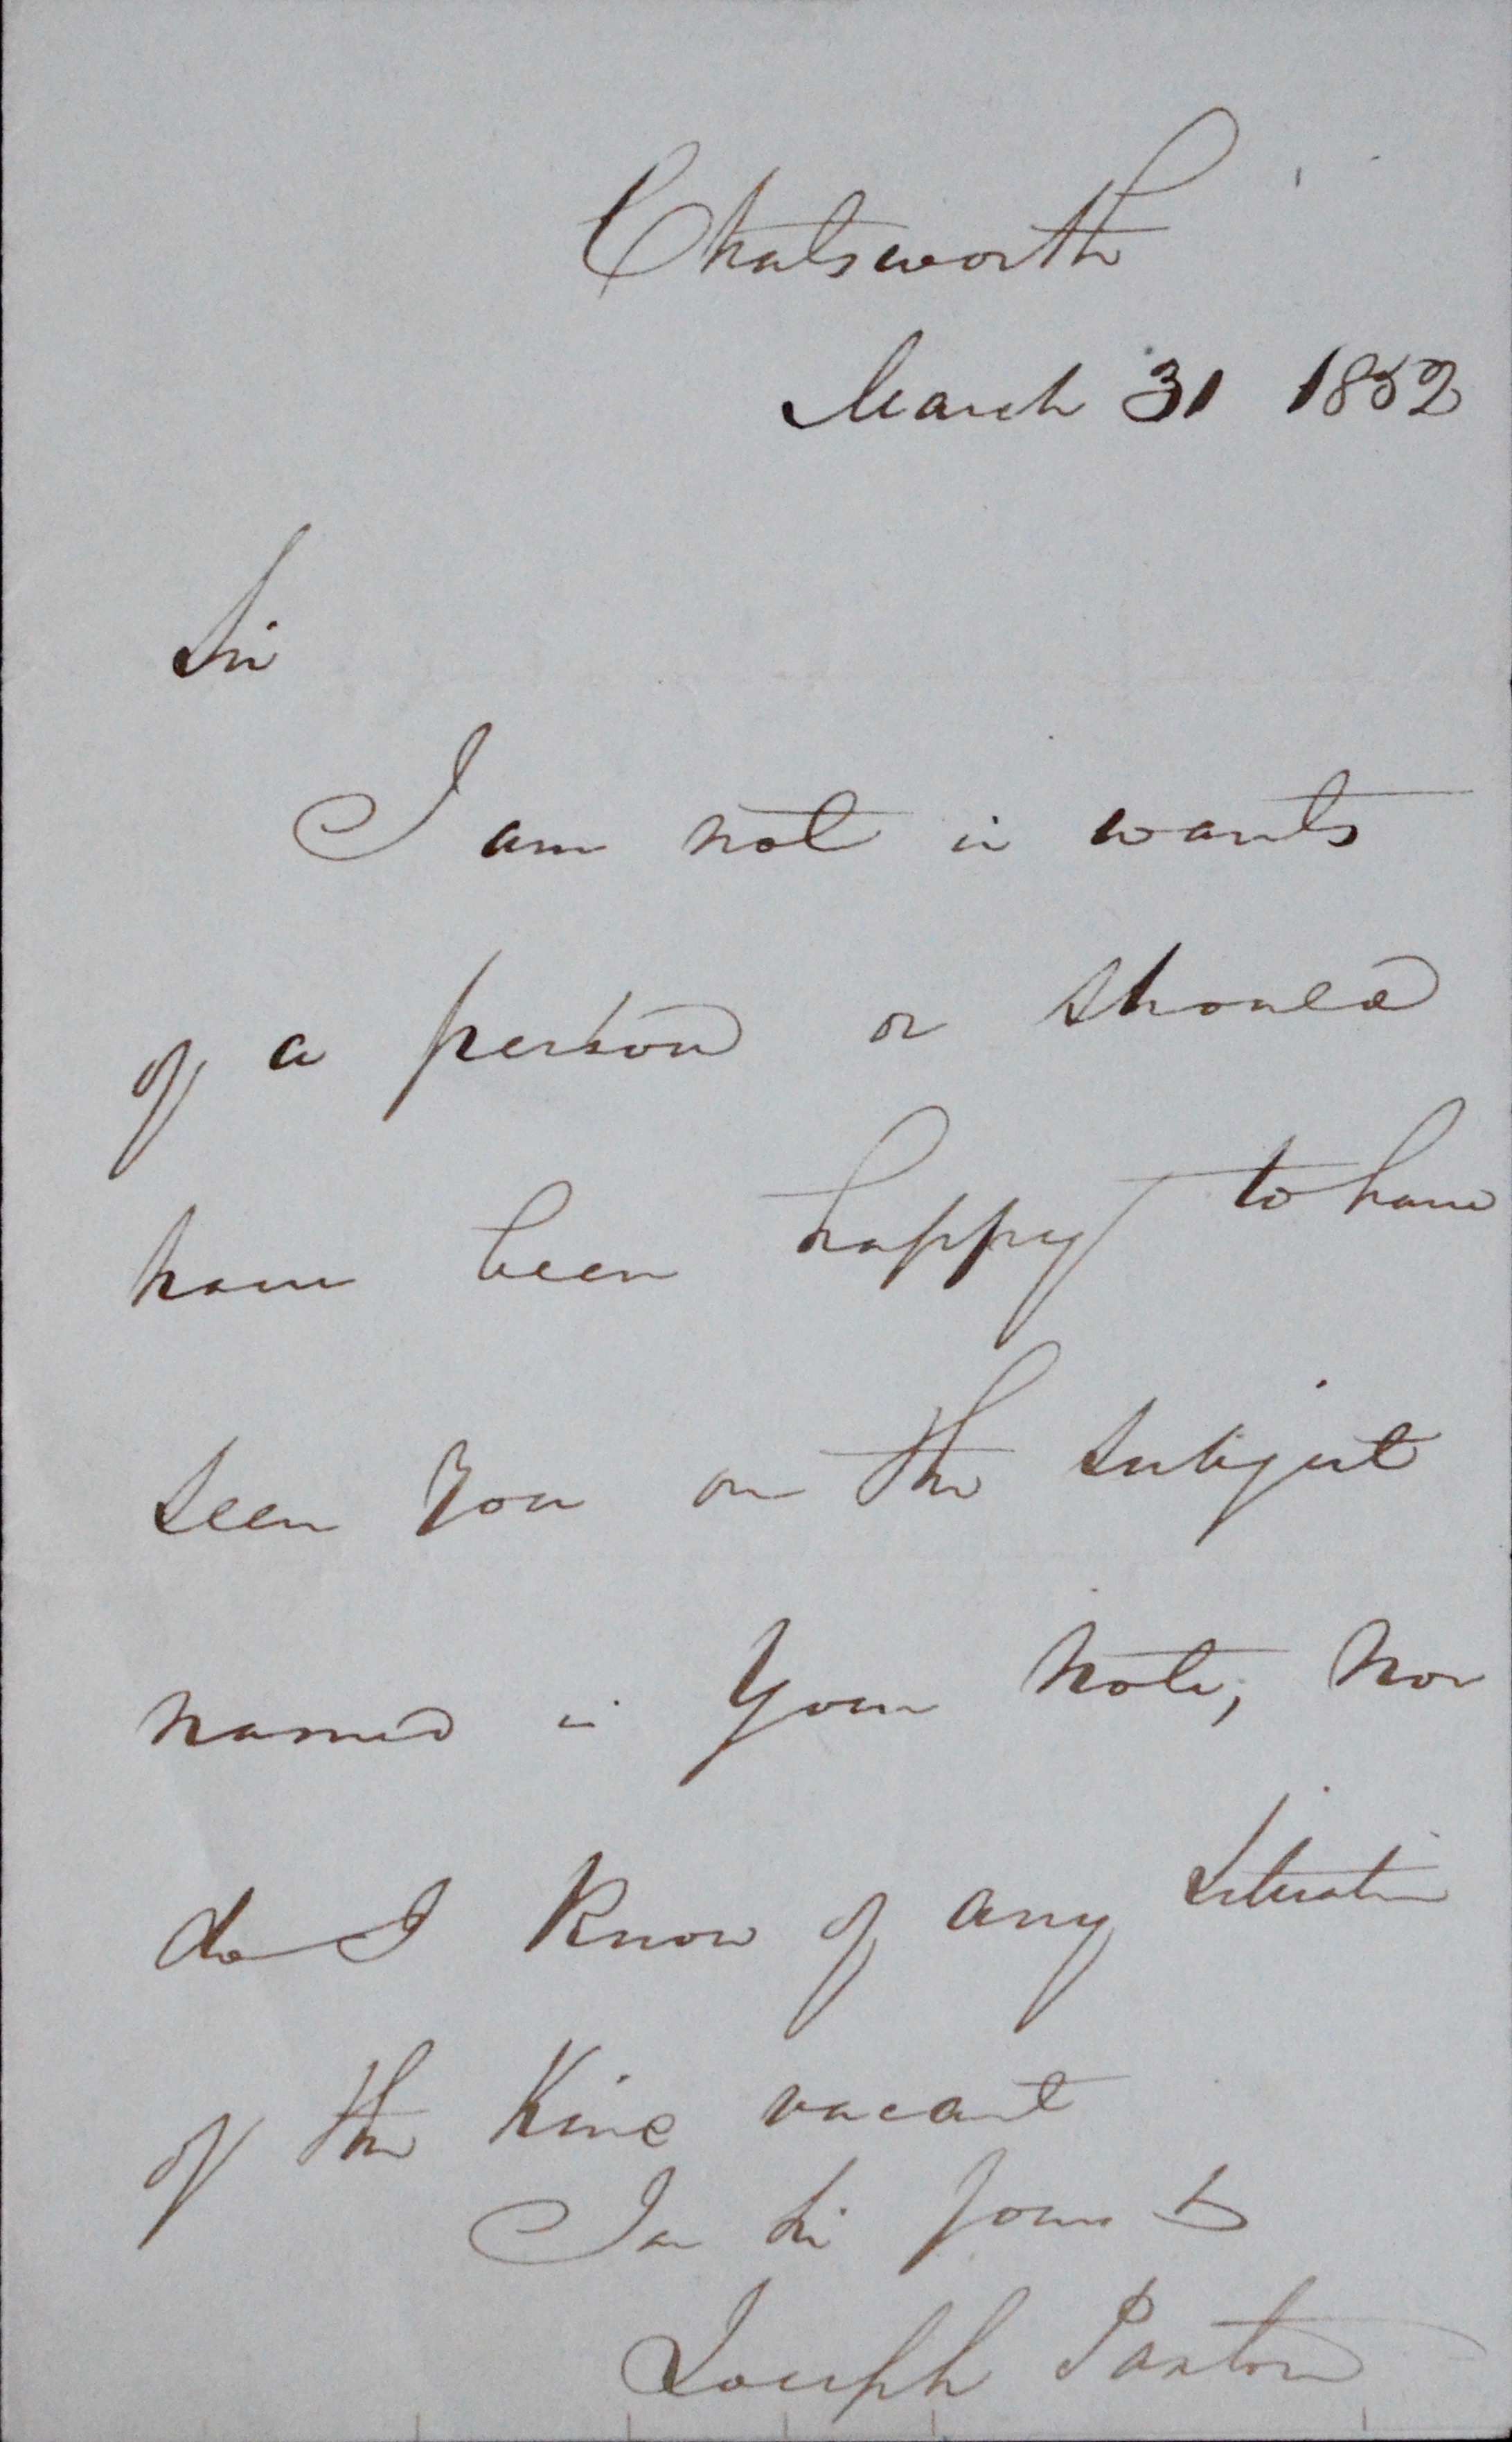 Chatsworth
March 31 1852
Sir
I am not in wants
of a person or should
have been happy to have
seen you on the subject
named in your note, nor
do I know of any situation
of the kind vacant
I am Sir yours
Joseph Paxton